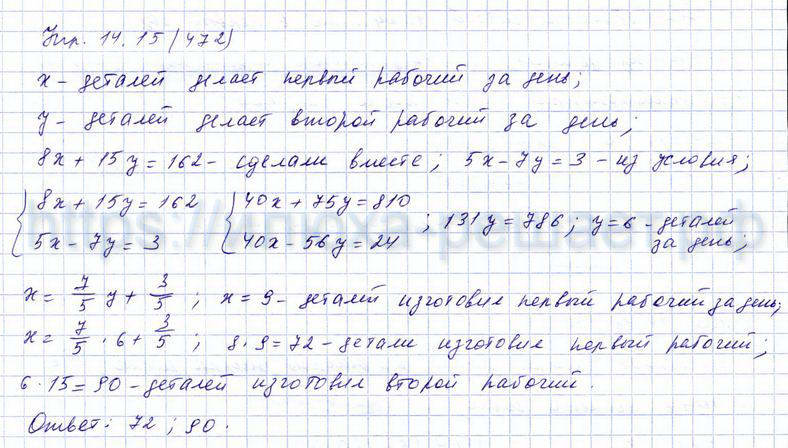 Упр. 14.15 (472)
x - деталей делает первый рабочий за день;
y - деталей делает второй рабочий за день;
8x + 15y = 162 - сделали вместе; 5x - 7y = 3 - из условия;
{8x + 15y = 162 {40x + 75y = 810 ; 131y = 786; y = 6 - деталей
{5x - 7y = 3 {40x - 56y = 24 за день;
x = 7/5 y + 3/5 ; x = 9 - деталей изготовил первый рабочий за день;
x = 7/5 · 6 + 3/5 ; 8 · 9 = 72 - детали изготовил первый рабочий;
6 · 15 = 90 - деталей изготовил второй рабочий.
Ответ: 72 ; 90.
https://илюха-решает.рф